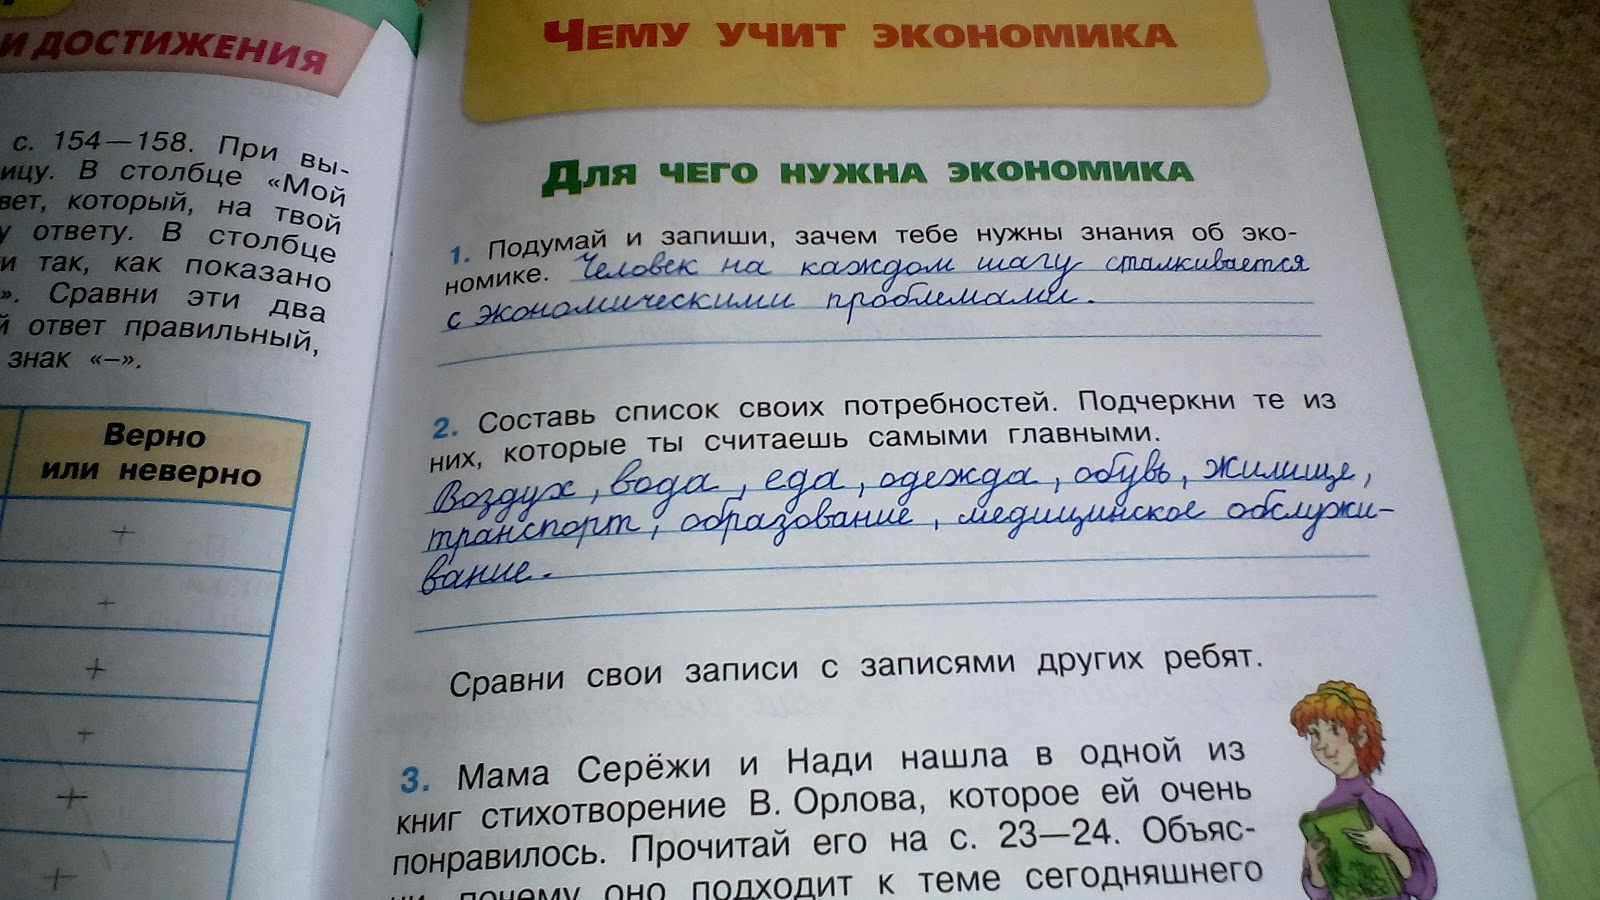 И ДОСТИЖЕНИЯ
с. 154—158. При вы-
ицу. В столбце «Мой
вет, который, на твой
у ответу. В столбце
и так, как показано
». Сравни эти два
й ответ правильный,
знак «–».
Верно
или неверно
+
+
+
+
+
+
ЧЕМУ УЧИТ ЭКОНОМИКА
ДЛЯ ЧЕГО НУЖНА ЭКОНОМИКА
1. Подумай и запиши, зачем тебе нужны знания об эко-
номике. Человек на каждом шагу сталкивается
с экономическими проблемами.
2. Составь список своих потребностей. Подчеркни те из
них, которые ты считаешь самыми главными.
Воздух, вода, еда, одежда, обувь, жилище,
транспорт, образование, медицинское обслужи-
вание.
Сравни свои записи с записями других ребят.
3. Мама Серёжи и Нади нашла в одной из
книг стихотворение В. Орлова, которое ей очень
понравилось. Прочитай его на с. 23—24. Объяс-
ни, почему оно подходит к теме сегодняшнего